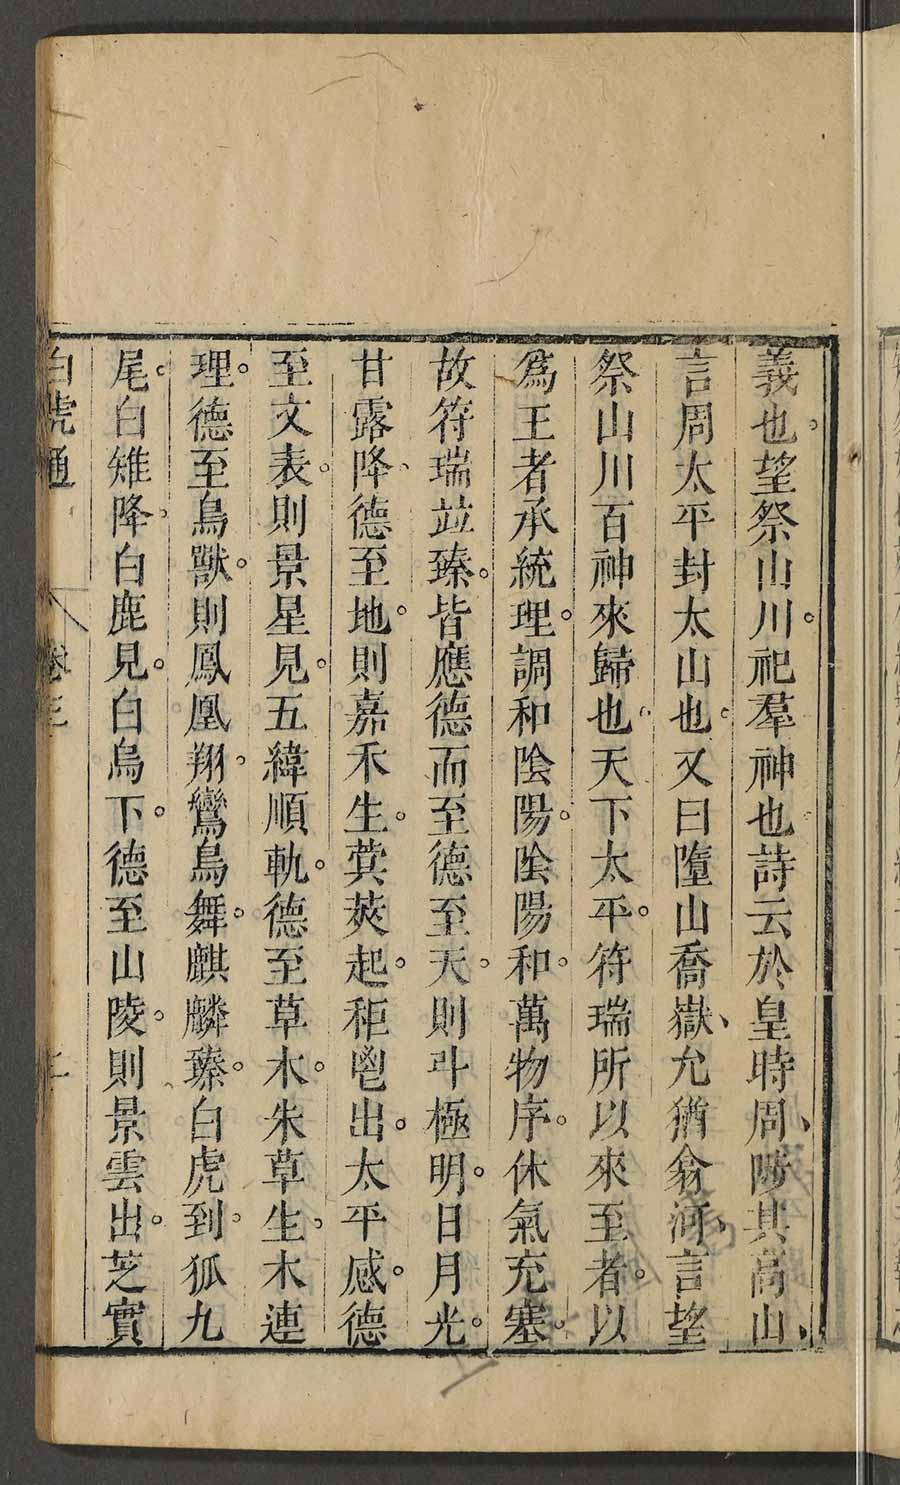 義也。望祭山川。祀羣神也詩云於皇時周、陟其高山、
言周太平封太山也。又曰墮山喬嶽、允猶翕河、言望
祭山川百神來歸也。天下太平。符瑞所以來至者。以
爲王者承統理。調和陰陽。陰陽和。萬物序。休氣充塞。
故符瑞竝臻。皆應德而至德至天。則斗極明。日月光。
甘露降、德至地。則嘉禾生。蓂莢起。秬鬯出。太平感。德
至文表。則景星見。五緯順軌。德至草木。朱草生。木連
理。德至鳥獸。則鳳凰翔。鸞鳥舞。麒麟臻。白虎到。狐九
尾。白雉降。白鹿見。白烏下。德至山陵。則景雲出。芝實
白虎通 卷三